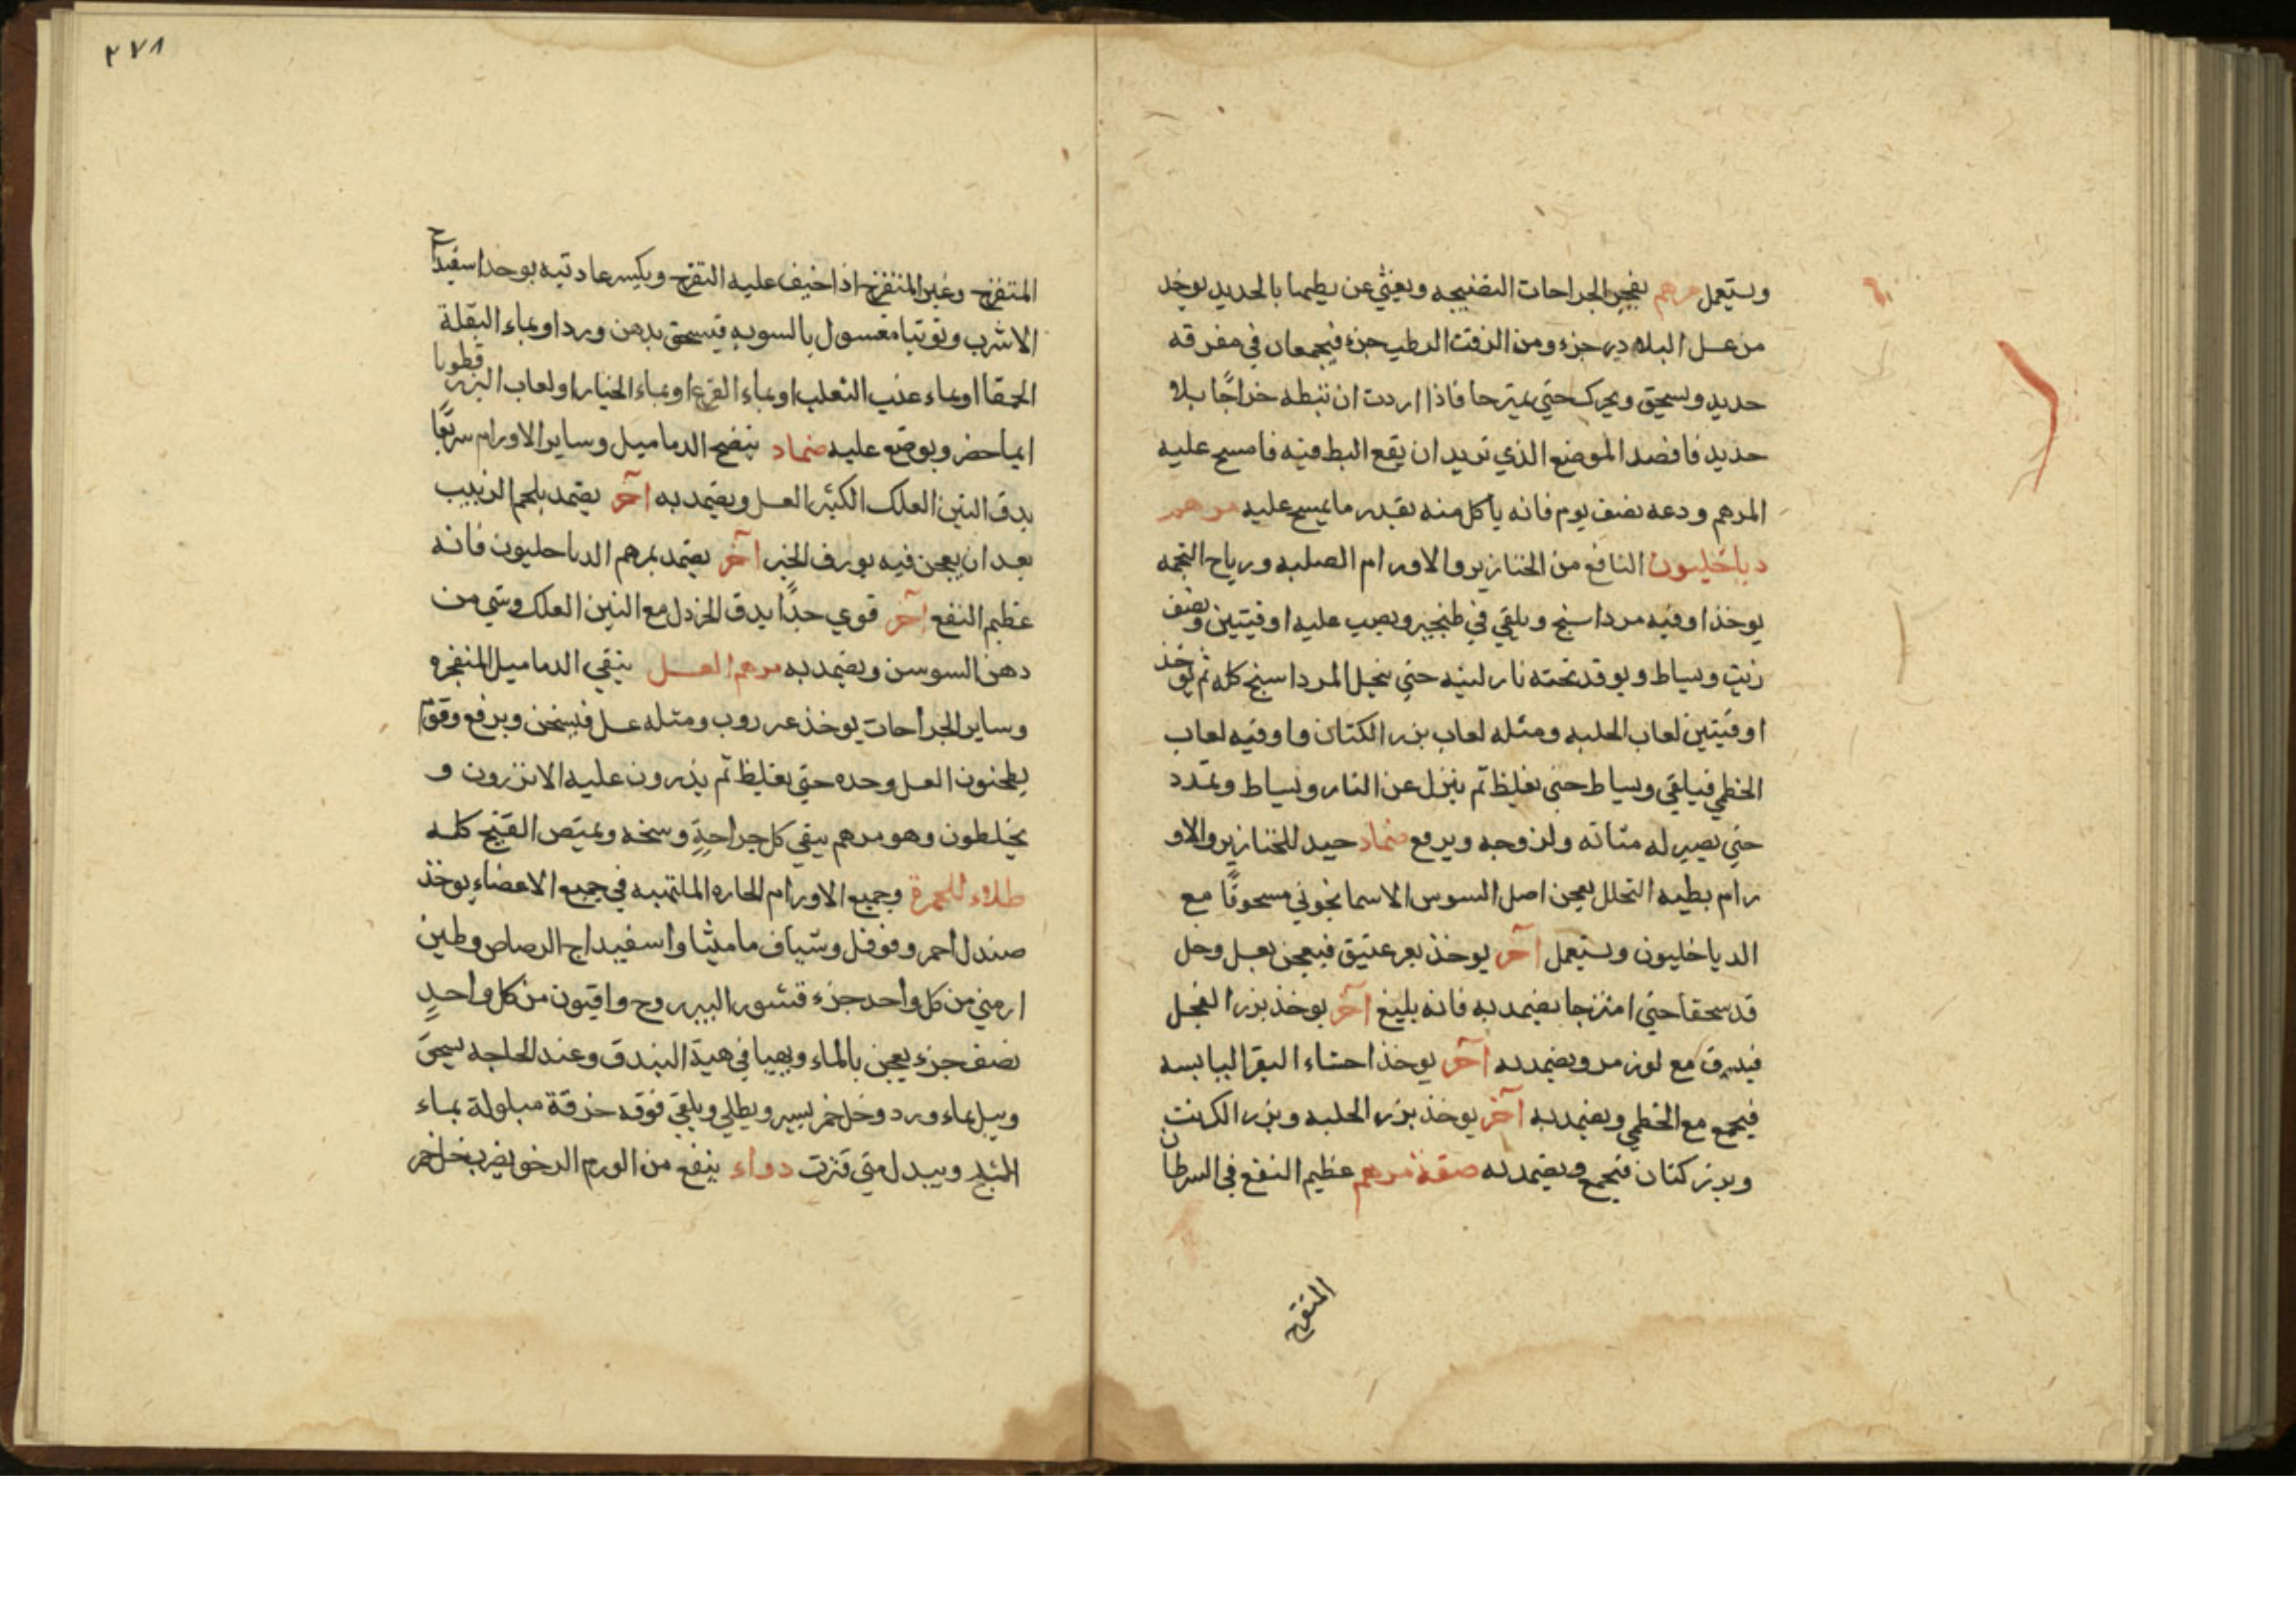 ويستعمل مرهم يفجر الجراحات النضيجه ويغني عن بطها بالحديد يوخذ
من عسل البلادر جزء ومن الزفت الرطب جزء فيجمعان في مغرفه
حديد ويسحق ويحرك حتى يمتزجا فاذا اردت ان تبطه خراجًا بلا
حديد فاقصد الموضع الذي تريد ان يقع البط فيه فامسح عليه
المرهم ودعه نصف يوم فانه ياكل منه بقدر ما يمسح عليه مرهم
دياخليون النافع من الخنازير والاورام الصلبه ورياح
يوخذ اوقيه مرداسنج ويلقي في طنجير ويصب عليه اوقيتين ونصف
زيت ويساط ويوقد تحته نار لينه حتى ينحل المرداسنج كله ثم يوخذ
اوقيتين لعاب الحلبه ومثله لعاب بزر الكتان واوقيه لعاب
الخطمي فيلقي ويساط حتى يغلظ ثم ينزل عن النار ويساط ويمدد
حتى يصير له متانه ولزوجه ويرفع ضماد جيد للخنازير والاو
رام بطيه التحلل يعجن اصل السوس الاسمانجوني مسحوقًا مع
الدياخليون ويستعمل آخر يوخذ بعر عتيق فيعجن بعسل وخل
قد سحقا حتى امتزجا يضمد به فانه بليغ آخر يوخذ بزر الفجل
فيدق مع لوز مر ويضمد به آخر يوخذ احشاء البقر اليابسه
فيجمع مع الخطمي ويضمد به آخر يوخذ بزر الحلبه وبزر الكرنب
وبزر كتان فيجمع ويضمد به صفة مرهم عظيم النفع في السرطان
المتقرح
٢٧٨
المتقرح وغير المتقرح اذا خيف عليه التقرح ويكسر عاديته يوخذ اسفيداج
الاسرب وتوتيا مغسول بالسويه فيسحق بدهن ورد او بماء البقلة
الحمقا او بماء عنب الثعلب او بماء القرع او بماء الخيار او لعاب البزر قطونا
ايما حضر ويوضع عليه ضماد ينضج الدماميل وساير الاورام سريعًا
يدق التين العلك الكثير العسل ويضمد به آخر يضمد بلحم الزبيب
بعد ان يعجن فيه بورق الخبز آخر يضمد بمرهم الدياخليون فانه
عظيم النفع آخر قوي جدًا يدق الخردل مع التين العلك وشي من
دهن السوسن ويضمد به مرهم العسل ينقي الدماميل المنفجره
وساير الجراحات يوخذ عنزروت ومثله عسل فيسخن ويرفع وقوم
يطبخون العسل وحده حتى يغلظ ثم يذرون عليه الانزروت و
يخلطون وهو مرهم ينقي كل جراحةٍ وسخه ويمتص القيح كله
طلاء للحمرة وجميع الاورام الحاره الملتهبه في جميع الاعضاء يوخذ
صندل احمر وفوفل وشياف ماميثا واسفيداج الرصاص وطين
ارمني من كل واحد جزء قشور اليبروح وافيون من كل واحدٍ
نصف جزء يعجن بالماء ويهيا في هيئة البندق وعند الحاجه يسحق
ويبل بماء ورد وخل خمر يسير ويطلي ويلقي فوقه خرقة مبلولة بماء
الثلج ويبدل متى فترت دواء ينفع من الورم الرخو يضرب خل خمر